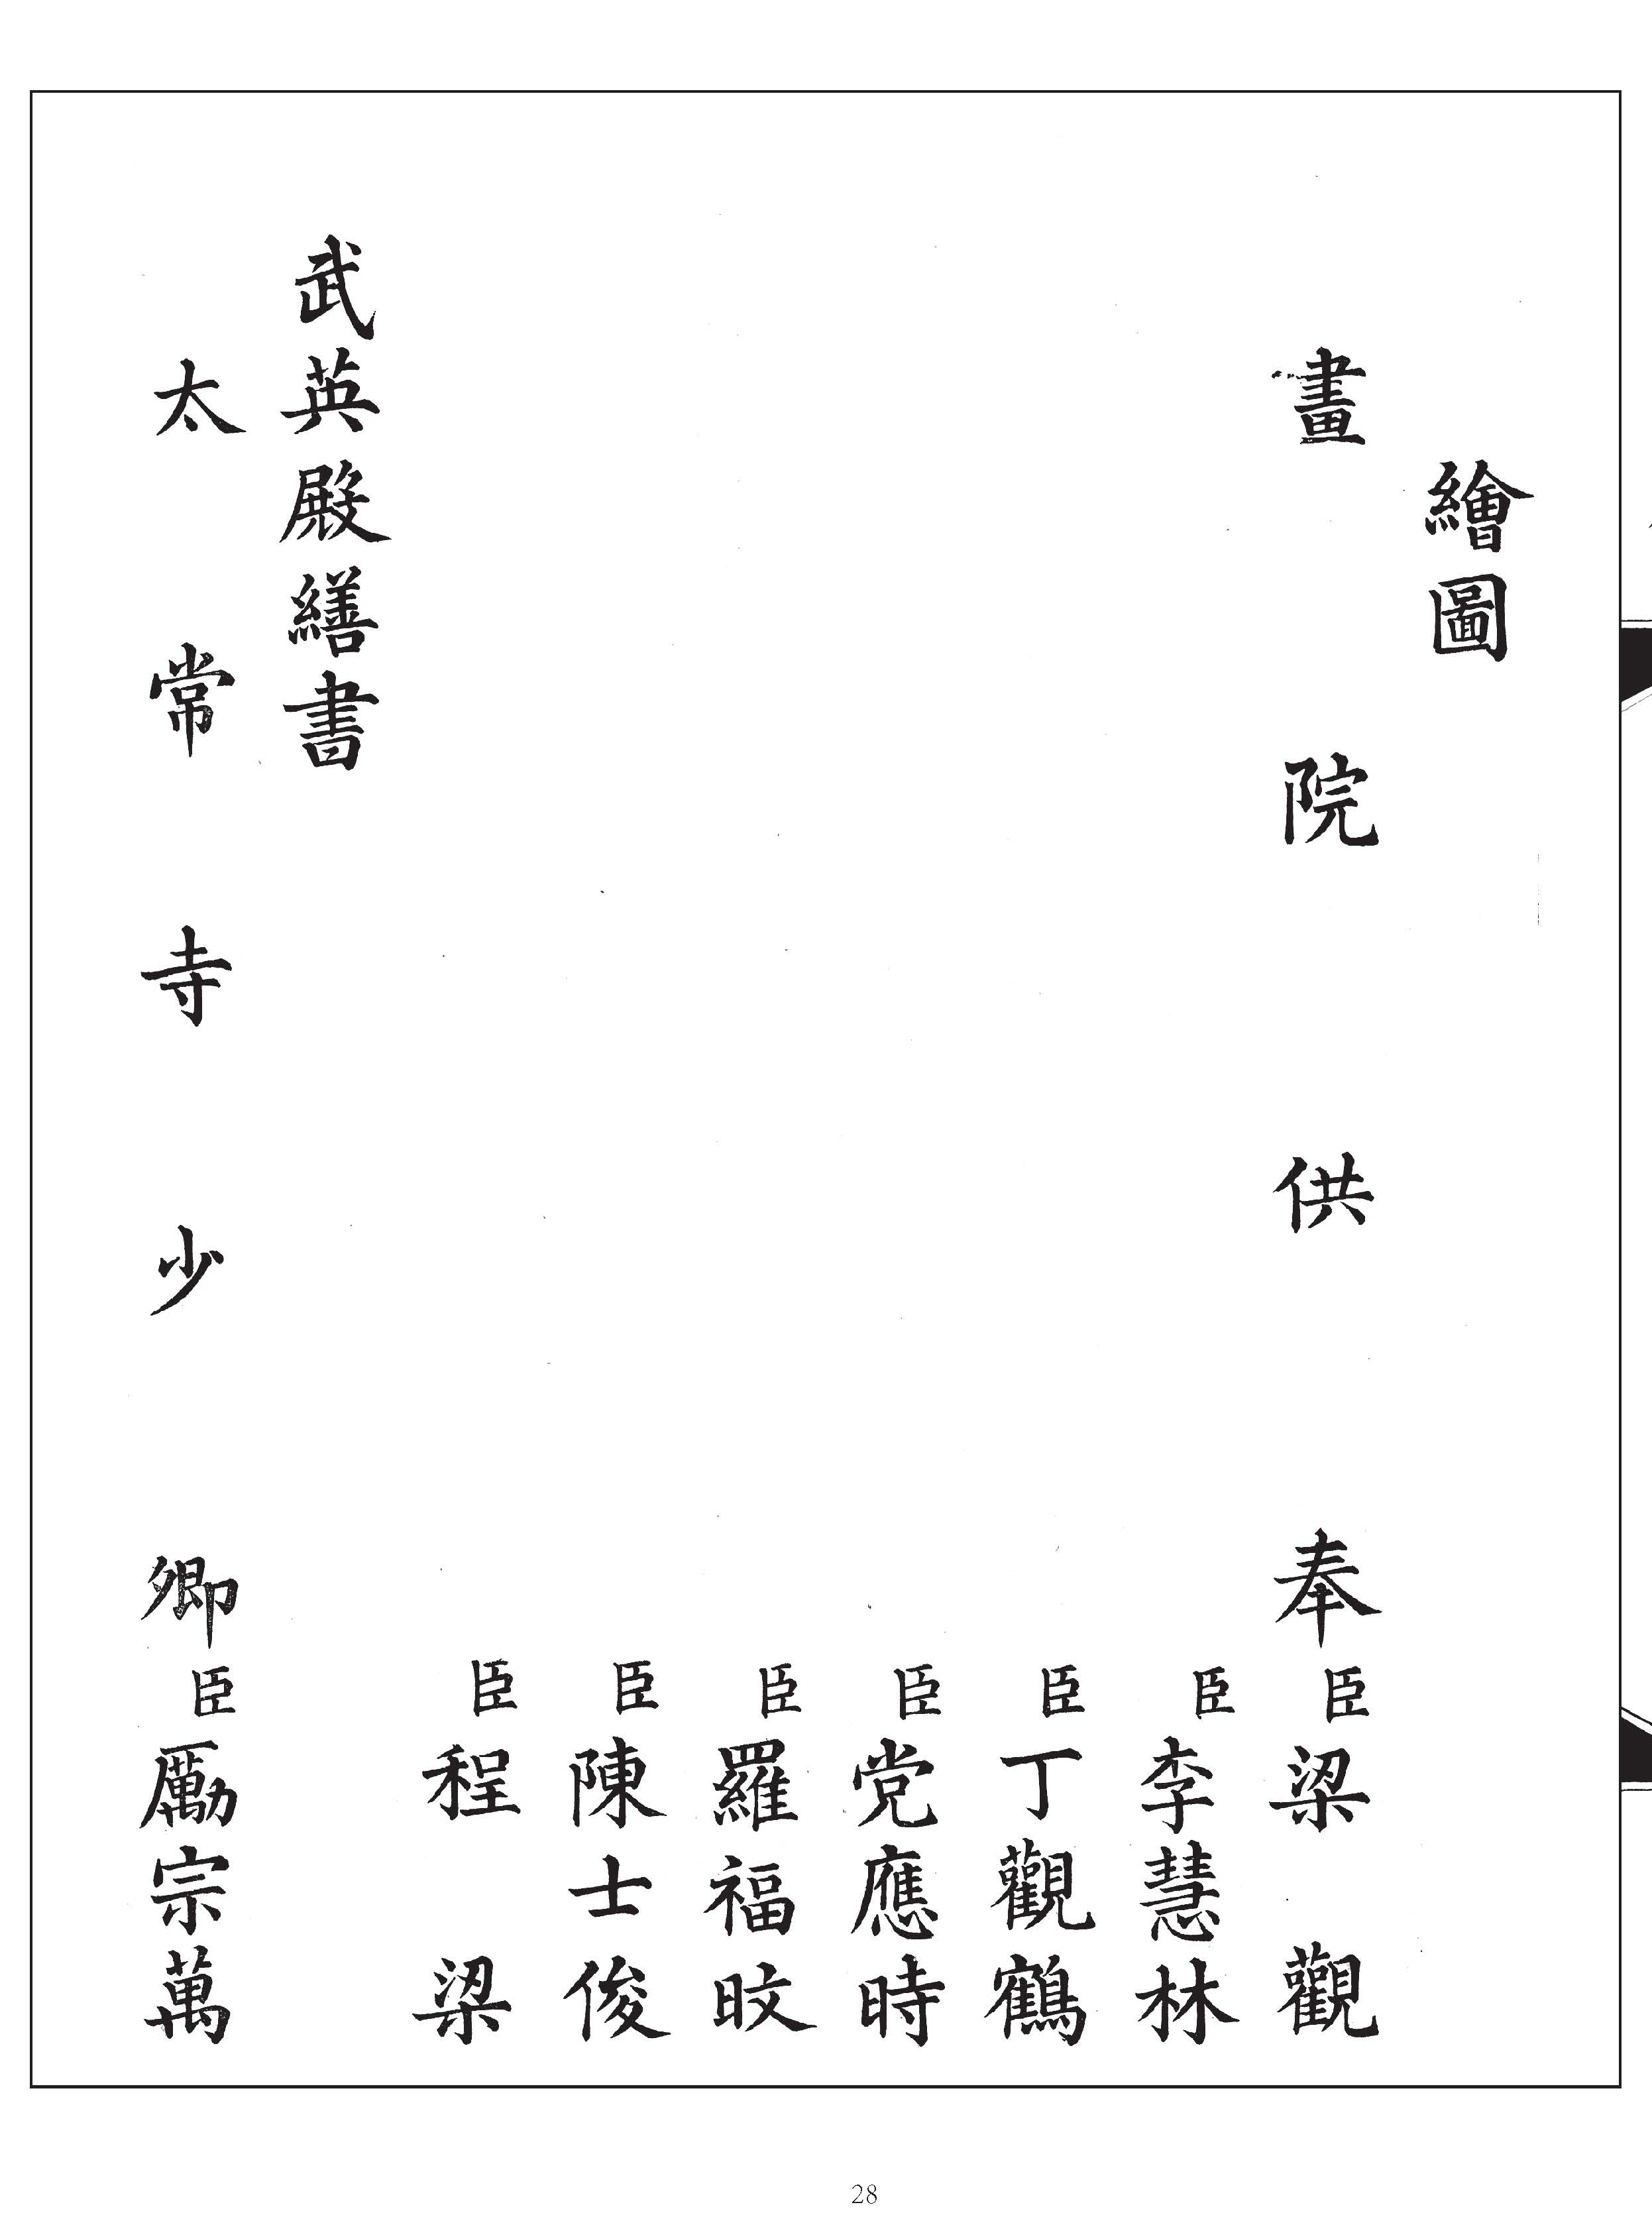 繪圖
畫院供奉臣梁觀
臣李慧林
臣丁觀鶴
臣党應時
臣羅福旼
臣陳士俊
臣程梁
武英殿繕書
太常寺少卿臣勵宗萬
28